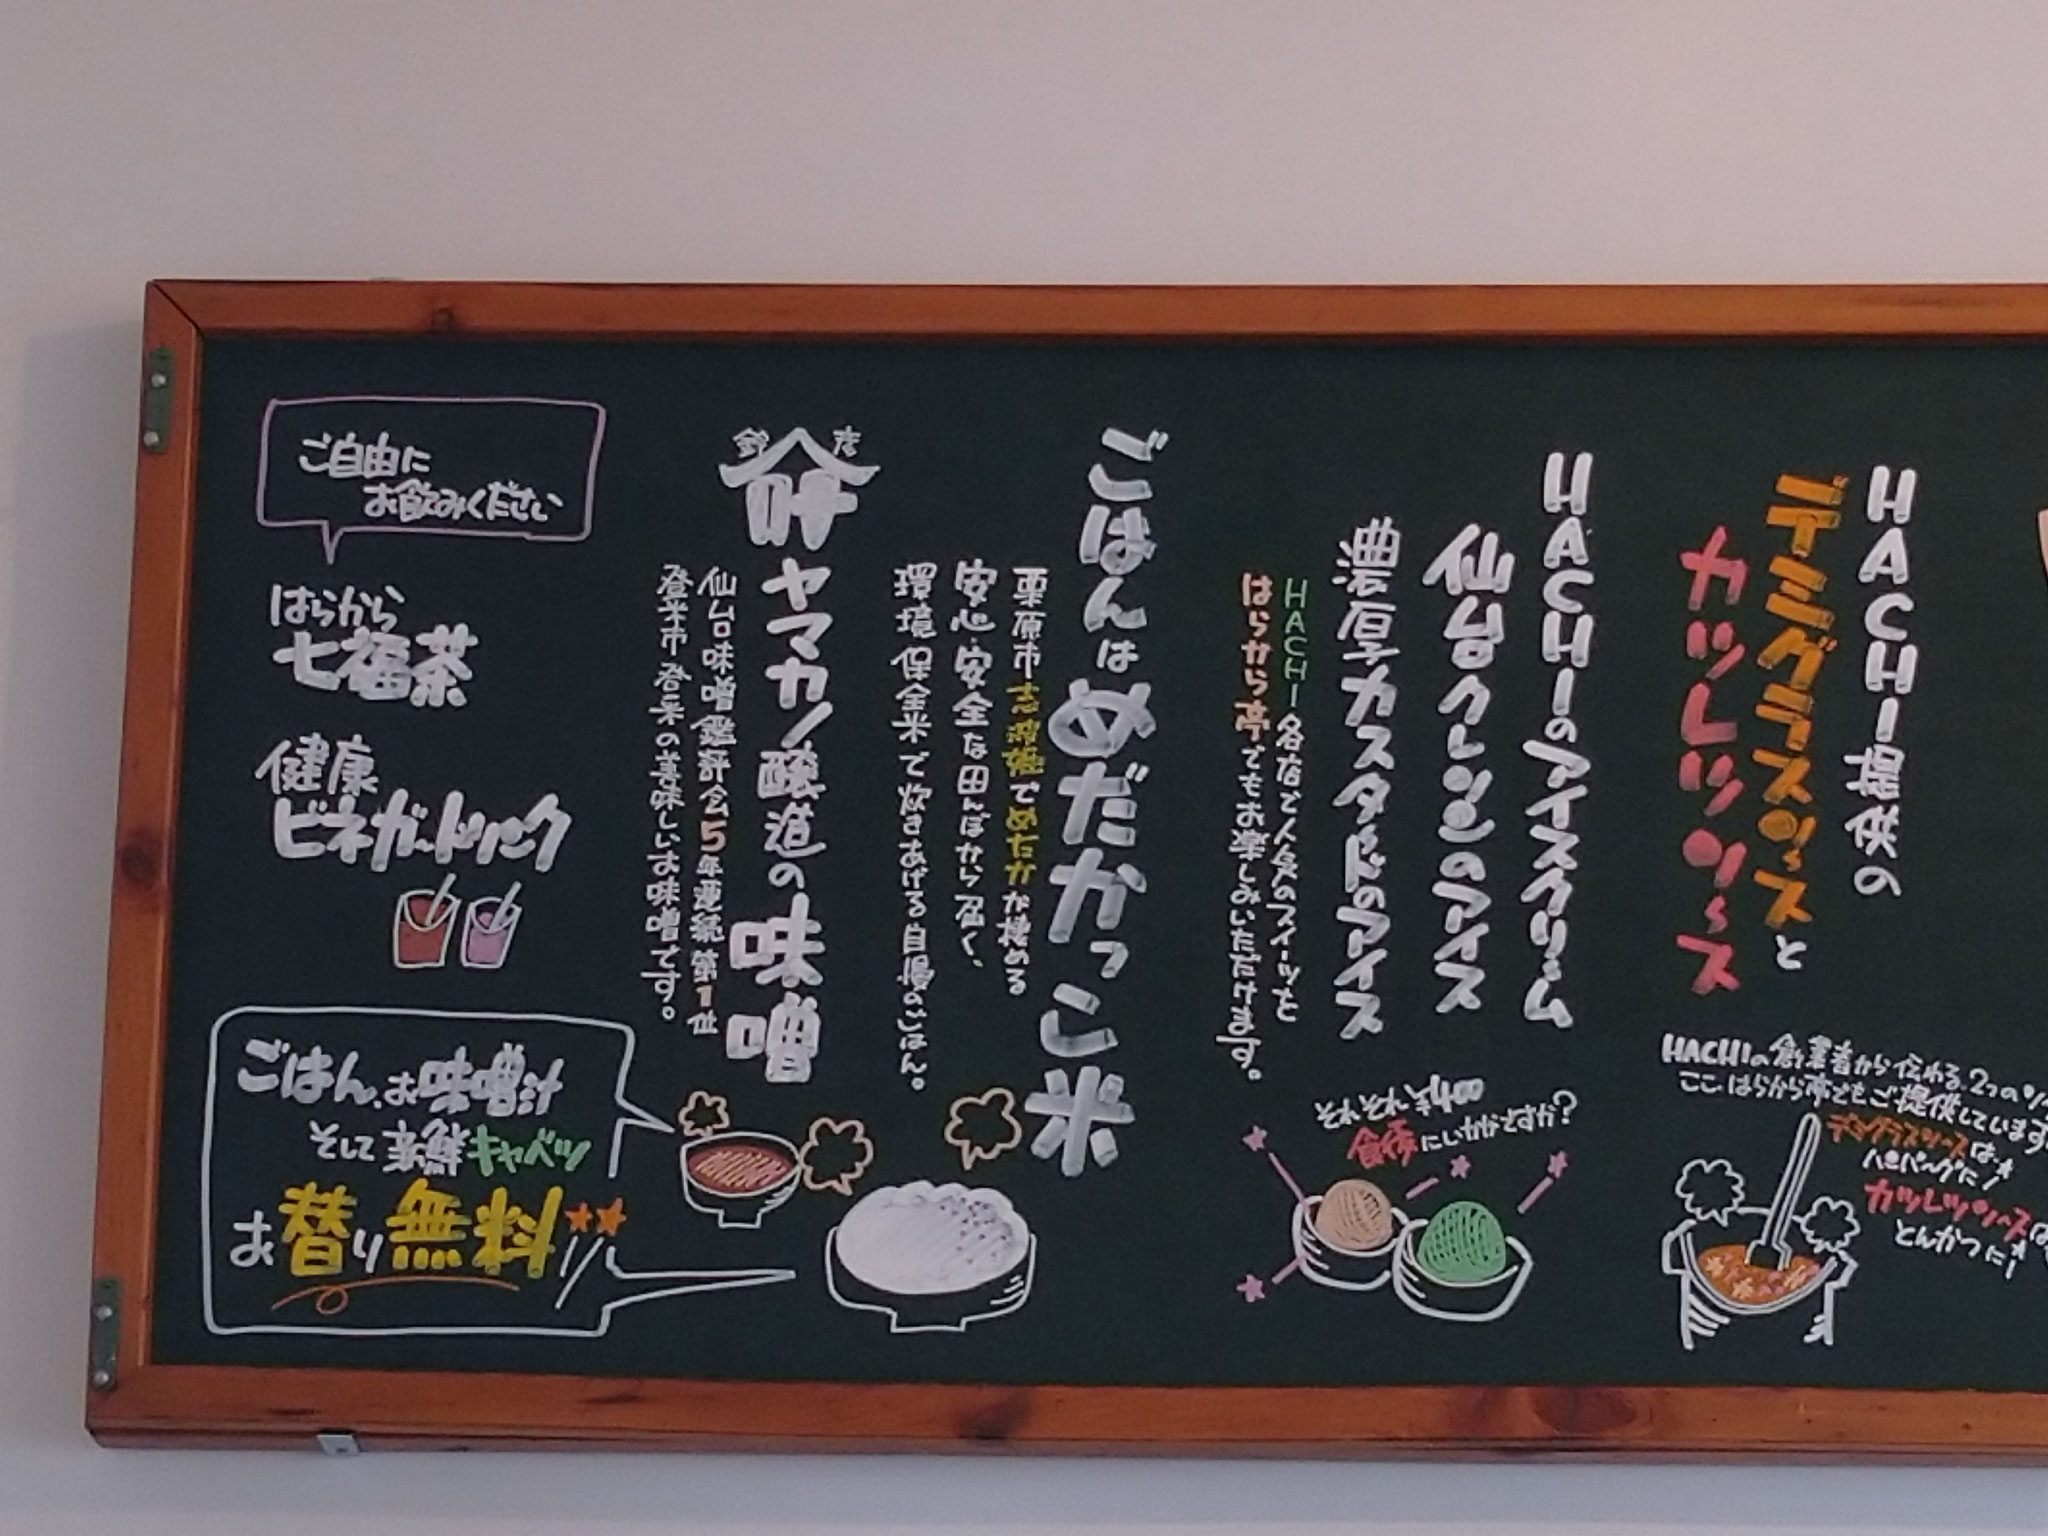 HACHI提供の
デミグラスソースと
カツレツソース
HACHIの創業者から伝わる、2つのソ
ここはらから亭でもご提供しています
デミグラスソースは
ハンバーグに!
カツレツソースは
とんかつに!
HACHIのアイスクリーム
仙台クレソンのアイス
濃厚カスタードのアイス
HACHI各店で人気のスイーツを
はらから亭でもお楽しみいただけます。
それぞれ¥400
食後にいかがですか?
ごはんはめだかっこ米
栗原市志波姫でめだかが棲める
安心・安全な田んぼから届く、
環境保全米で炊きあげる自慢のごはん。
ヤマカノ醸造の味噌
仙台味噌鑑評会5年連続第1位
登米市登米の美味しいお味噌です。
ご自由に
お飲みください
はらから
七福茶
健康
ビネガードリンク
ごはん、お味噌汁
そして新鮮キャベツ
お替り無料